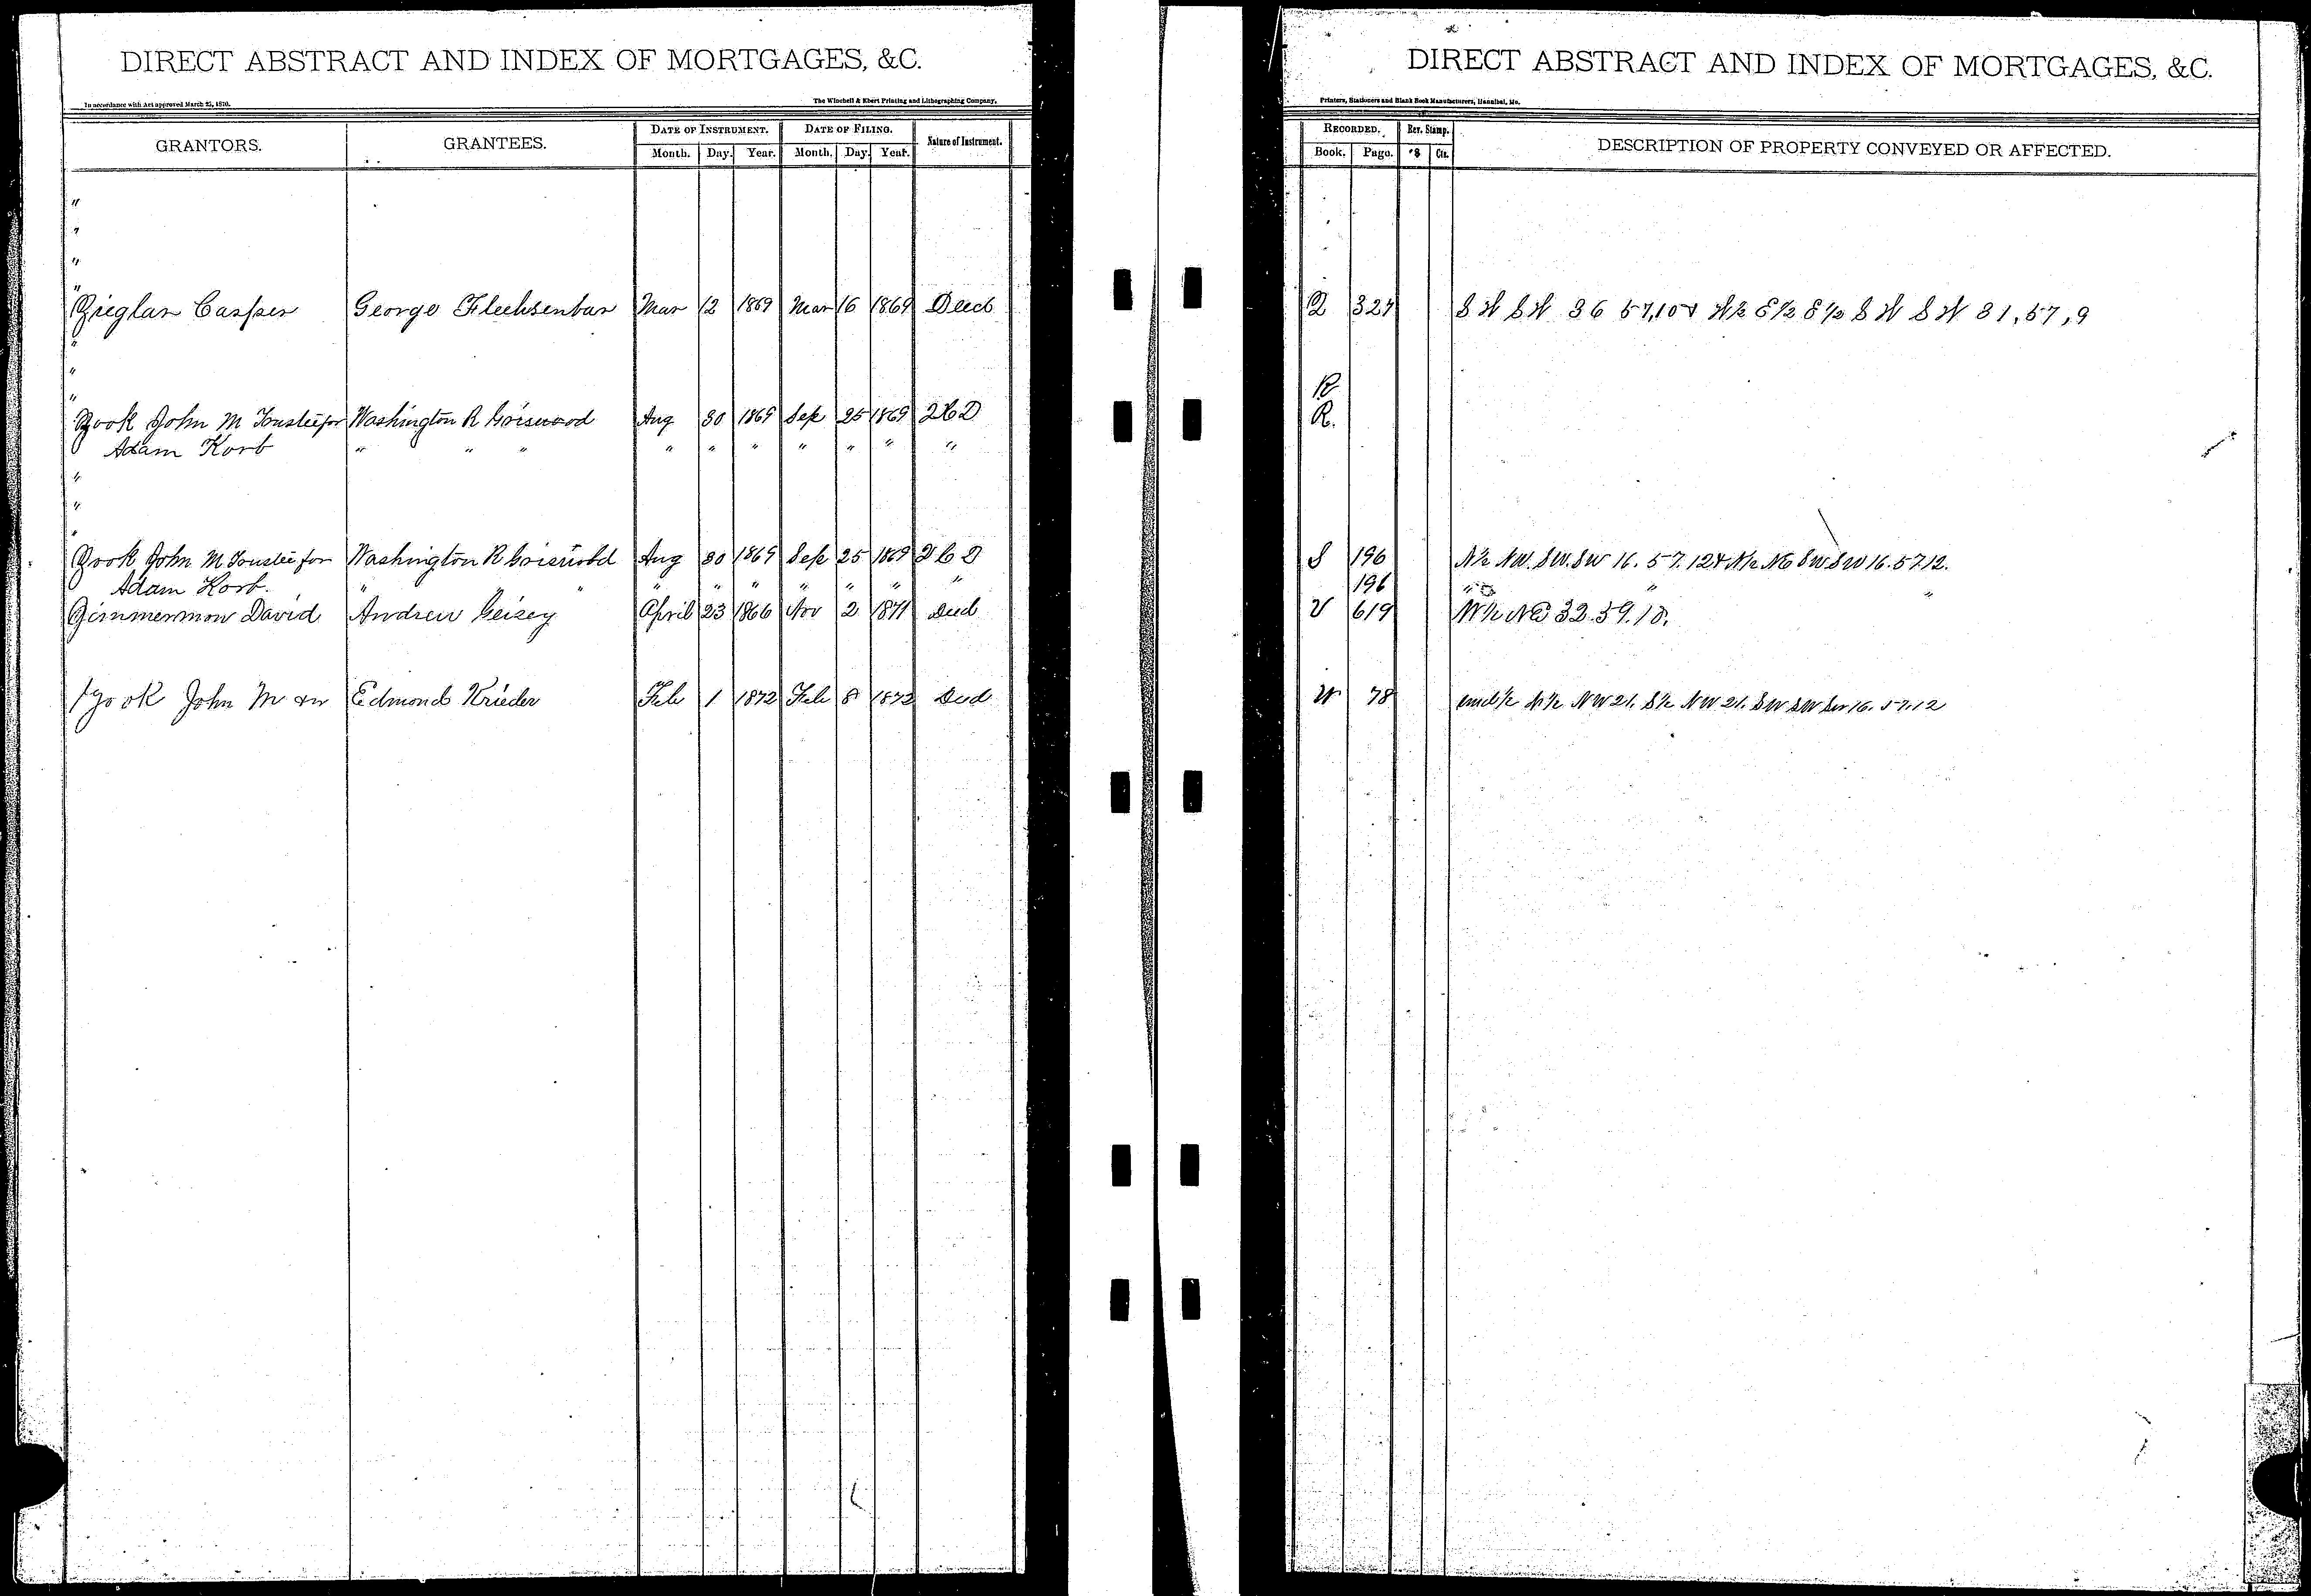 DIRECT ABSTRACT AND INDEX OF MORTGAGES, &C.
In accordance with Act approved March 25, 1870.
The Winchell & Ebert Printing and Lithographing Company,
GRANTORS.
GRANTEES.
DATE OF INSTRUMENT.
DATE OF FILING.
Nature of Instrument.
Month. Day. Year. Month. Day. Year.
"
"
"
"
Zieglar Casper George Flechsenbar Mar 12 1869 Mar 16 1869 Deed
"
"
"
Zook John M Trustee for Washington R Griswood Aug 30 1869 Sep 25 1869
Adam Korb " " " " " " " " " "
"
"
"
Zook John M Trustee for Washington R Griswold Aug 30 1869 Sep 25 1869
Adam Korb. " " " " " " " " "
Zimmermon David Andrew Geisey April 23 1866 Nov 2 1871 Deed
Zook John M Edmond Krieder Feb 1 1872 Feb 8 1872 Deed
DIRECT ABSTRACT AND INDEX OF MORTGAGES, &C.
Printers, Stationers and Blank Book Manufacturers, Hannibal, Mo.
RECORDED.
Rev. Stamp.
DESCRIPTION OF PROPERTY CONVEYED OR AFFECTED.
Book. Page. $ Cts.
Q 327 S W S W 36 57,10 & W½ E½ E½ S W S W 31,57,9
R
R.
S 196 N½ NW. SW. SW 16. 57. 12 & N½ NE SW. SW 16. 57.12.
196 " "
V 619 W½ NE 32.59.10.
W 78 und½ N½ NW 21. S½ NW 21. SW SW 16. 57.12